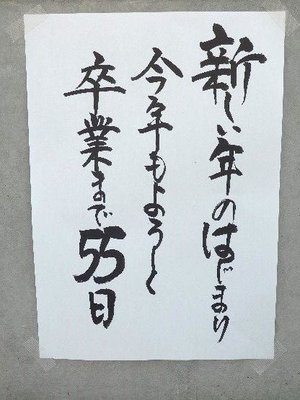 新しい年のはじまり
今年もよろしく
卒業まで55日